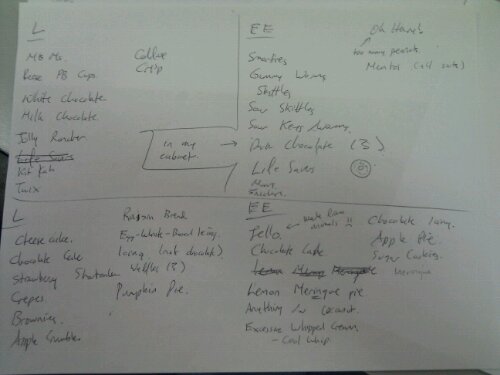 L
M&Ms.
Reese PB Cups.
White Chocolate
Milk Chocolate
Jolly Rancher
Life Savers
Kit Kat
Twix
Coffee
Crisp
EE
Smarties
Gummy Worms
Skittles
Sour Skittles
Sour Keys
Dark Chocolate (3)
Life Savers
Oh Henry's
too many peanuts.
Mentos
in my
cabinet.
L
Cheese cake.
Chocolate Cake
Strawberry Shortcake
Crepes
Brownies
Apple Crumble
Raisin Bread
Egg-White-Based icing.
Icing (not chocolate)
Waffles (3)
Pumpkin Pie.
EE
Jello.
make
animals
Chocolate Cake
Lemon Meringue
Lemon Meringue pie
Anything w/ coconut.
Excessive Whipped Cream
- Cool Whip
Chocolate Icing.
Apple Pie.
Sugar Cookies.
meringue